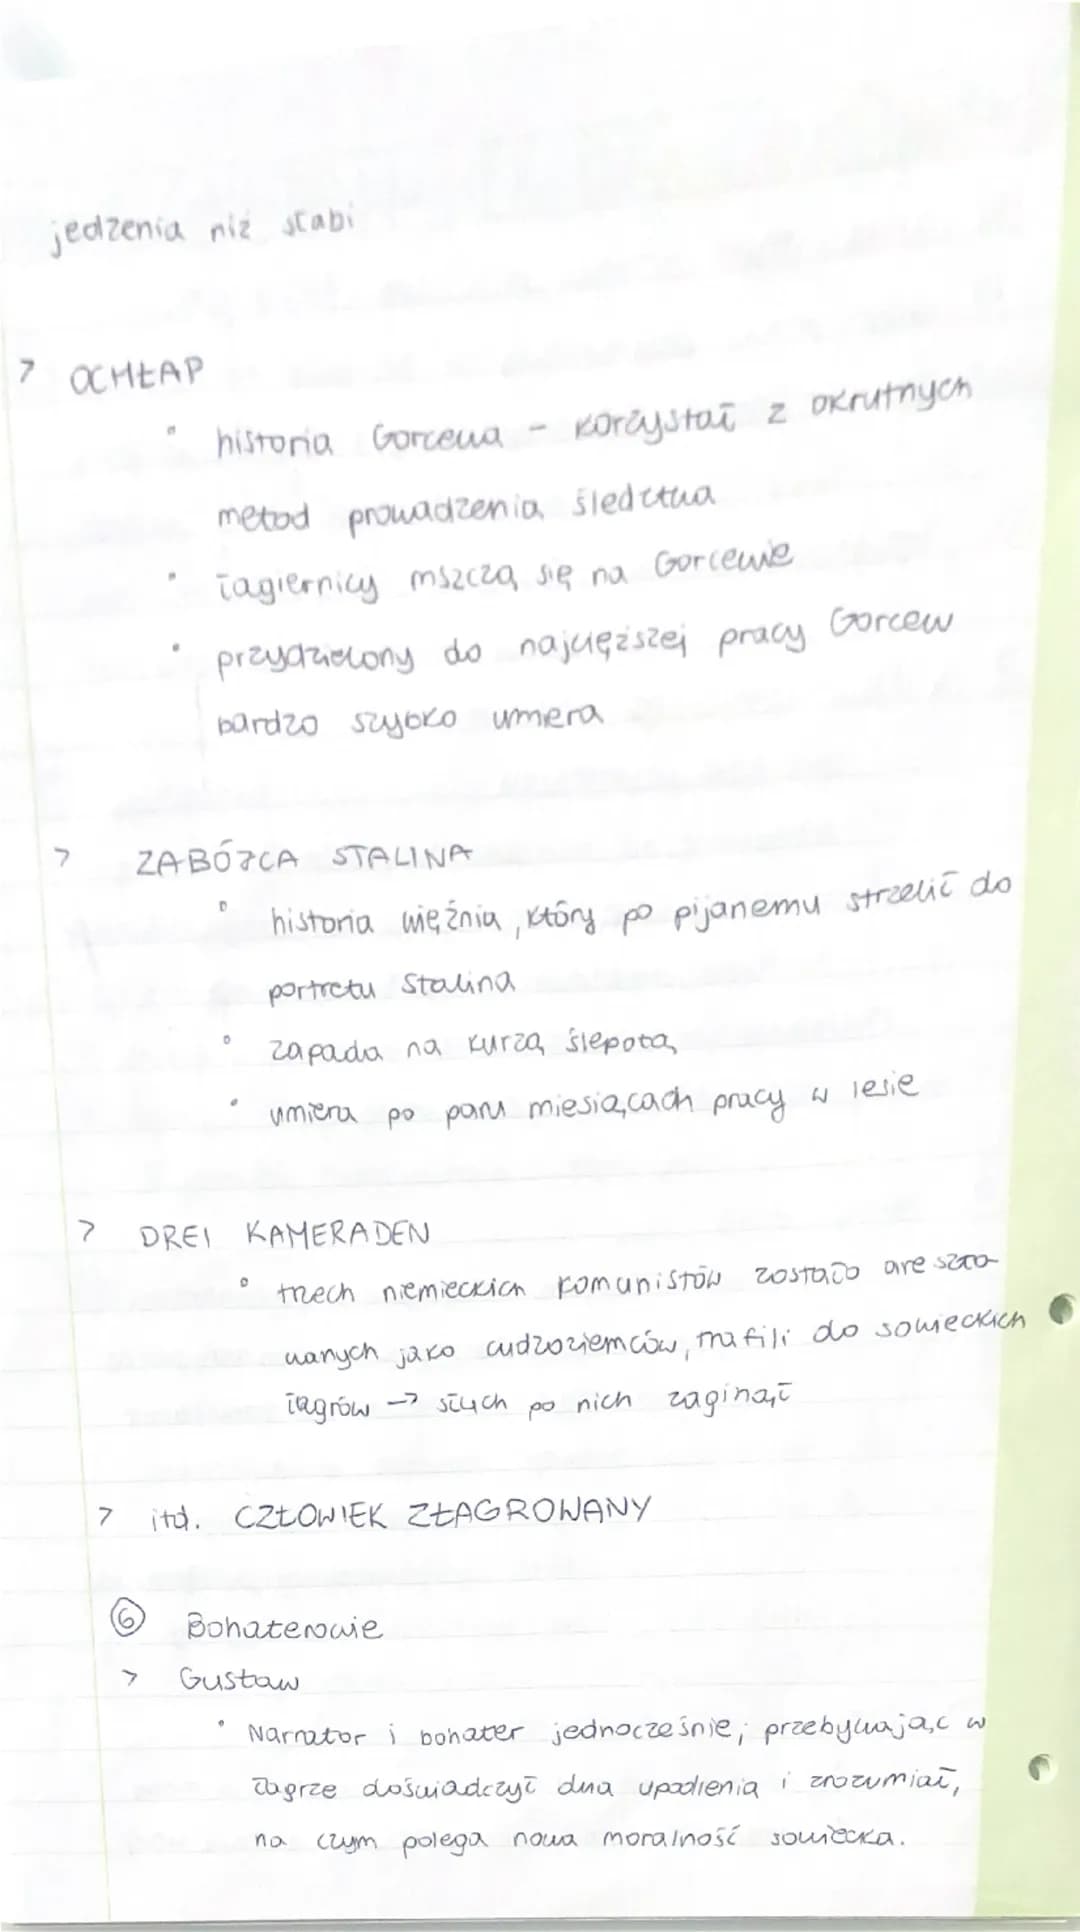 jedzenia niż słabi
> OCHŁAP
• historia Gorcewa - korzystał z okrutnych
metod prowadzenia śledztwa
• łagiernicy mszczą się na Gorcewie
• przydzielony do najcięższej pracy Gorcew
bardzo szybko umiera
> ZABÓJCA STALINA
• historia więźnia, który po pijanemu strzelił do
portretu Stalina
• zapada na kurzą ślepotą
• umiera po paru miesiącach pracy w lesie
> DREI KAMERADEN
• trzech niemieckich komunistów zostało areszto-
wanych jako cudzoziemców, trafili do sowieckich
łagrów → słuch po nich zaginął
> itd. CZŁOWIEK ZŁAGROWANY
⑥ Bohaterowie
> Gustaw
• Narrator i bohater jednocześnie; przebywając w
łagrze doświadczył dna upodlenia i zrozumiał,
na czym polega nowa moralność sowiecka.